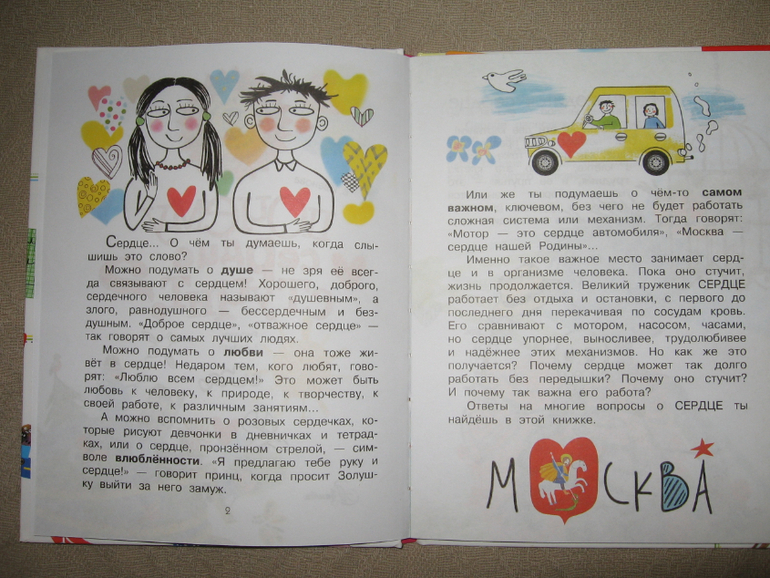 Сердце... О чём ты думаешь, когда слы-
шишь это слово?
Можно подумать о душе — не зря её всег-
да связывают с сердцем! Хорошего, доброго,
сердечного человека называют «душевным», а
злого, равнодушного — бессердечным и без-
душным. «Доброе сердце», «отважное сердце» —
так говорят о самых лучших людях.
Можно подумать о любви — она тоже жи-
вёт в сердце! Недаром тем, кого любят, гово-
рят: «Люблю всем сердцем!» Это может быть
любовь к человеку, к природе, к творчеству, к
своей работе, к различным занятиям...
А можно вспомнить о розовых сердечках, ко-
торые рисуют девчонки в дневничках и тетрад-
ках, или о сердце, пронзённом стрелой, — сим-
воле влюблённости. «Я предлагаю тебе руку и
сердце!» — говорит принц, когда просит Золуш-
ку выйти за него замуж.
2
Или же ты подумаешь о чём-то самом
важном, ключевом, без чего не будет работать
сложная система или механизм. Тогда говорят:
«Мотор — это сердце автомобиля», «Москва —
сердце нашей Родины»...
Именно такое важное место занимает серд-
це и в организме человека. Пока оно стучит,
жизнь продолжается. Великий труженик СЕРДЦЕ
работает без отдыха и остановки, с первого до
последнего дня перекачивая по сосудам кровь.
Его сравнивают с мотором, насосом, часами,
но сердце упорнее, выносливее, трудолюбивее
и надёжнее этих механизмов. Но как же это
получается? Почему сердце может так долго
работать без передышки? Почему оно стучит?
И почему так важна его работа?
Ответы на многие вопросы о СЕРДЦЕ ты
найдёшь в этой книжке.
МОСКВА